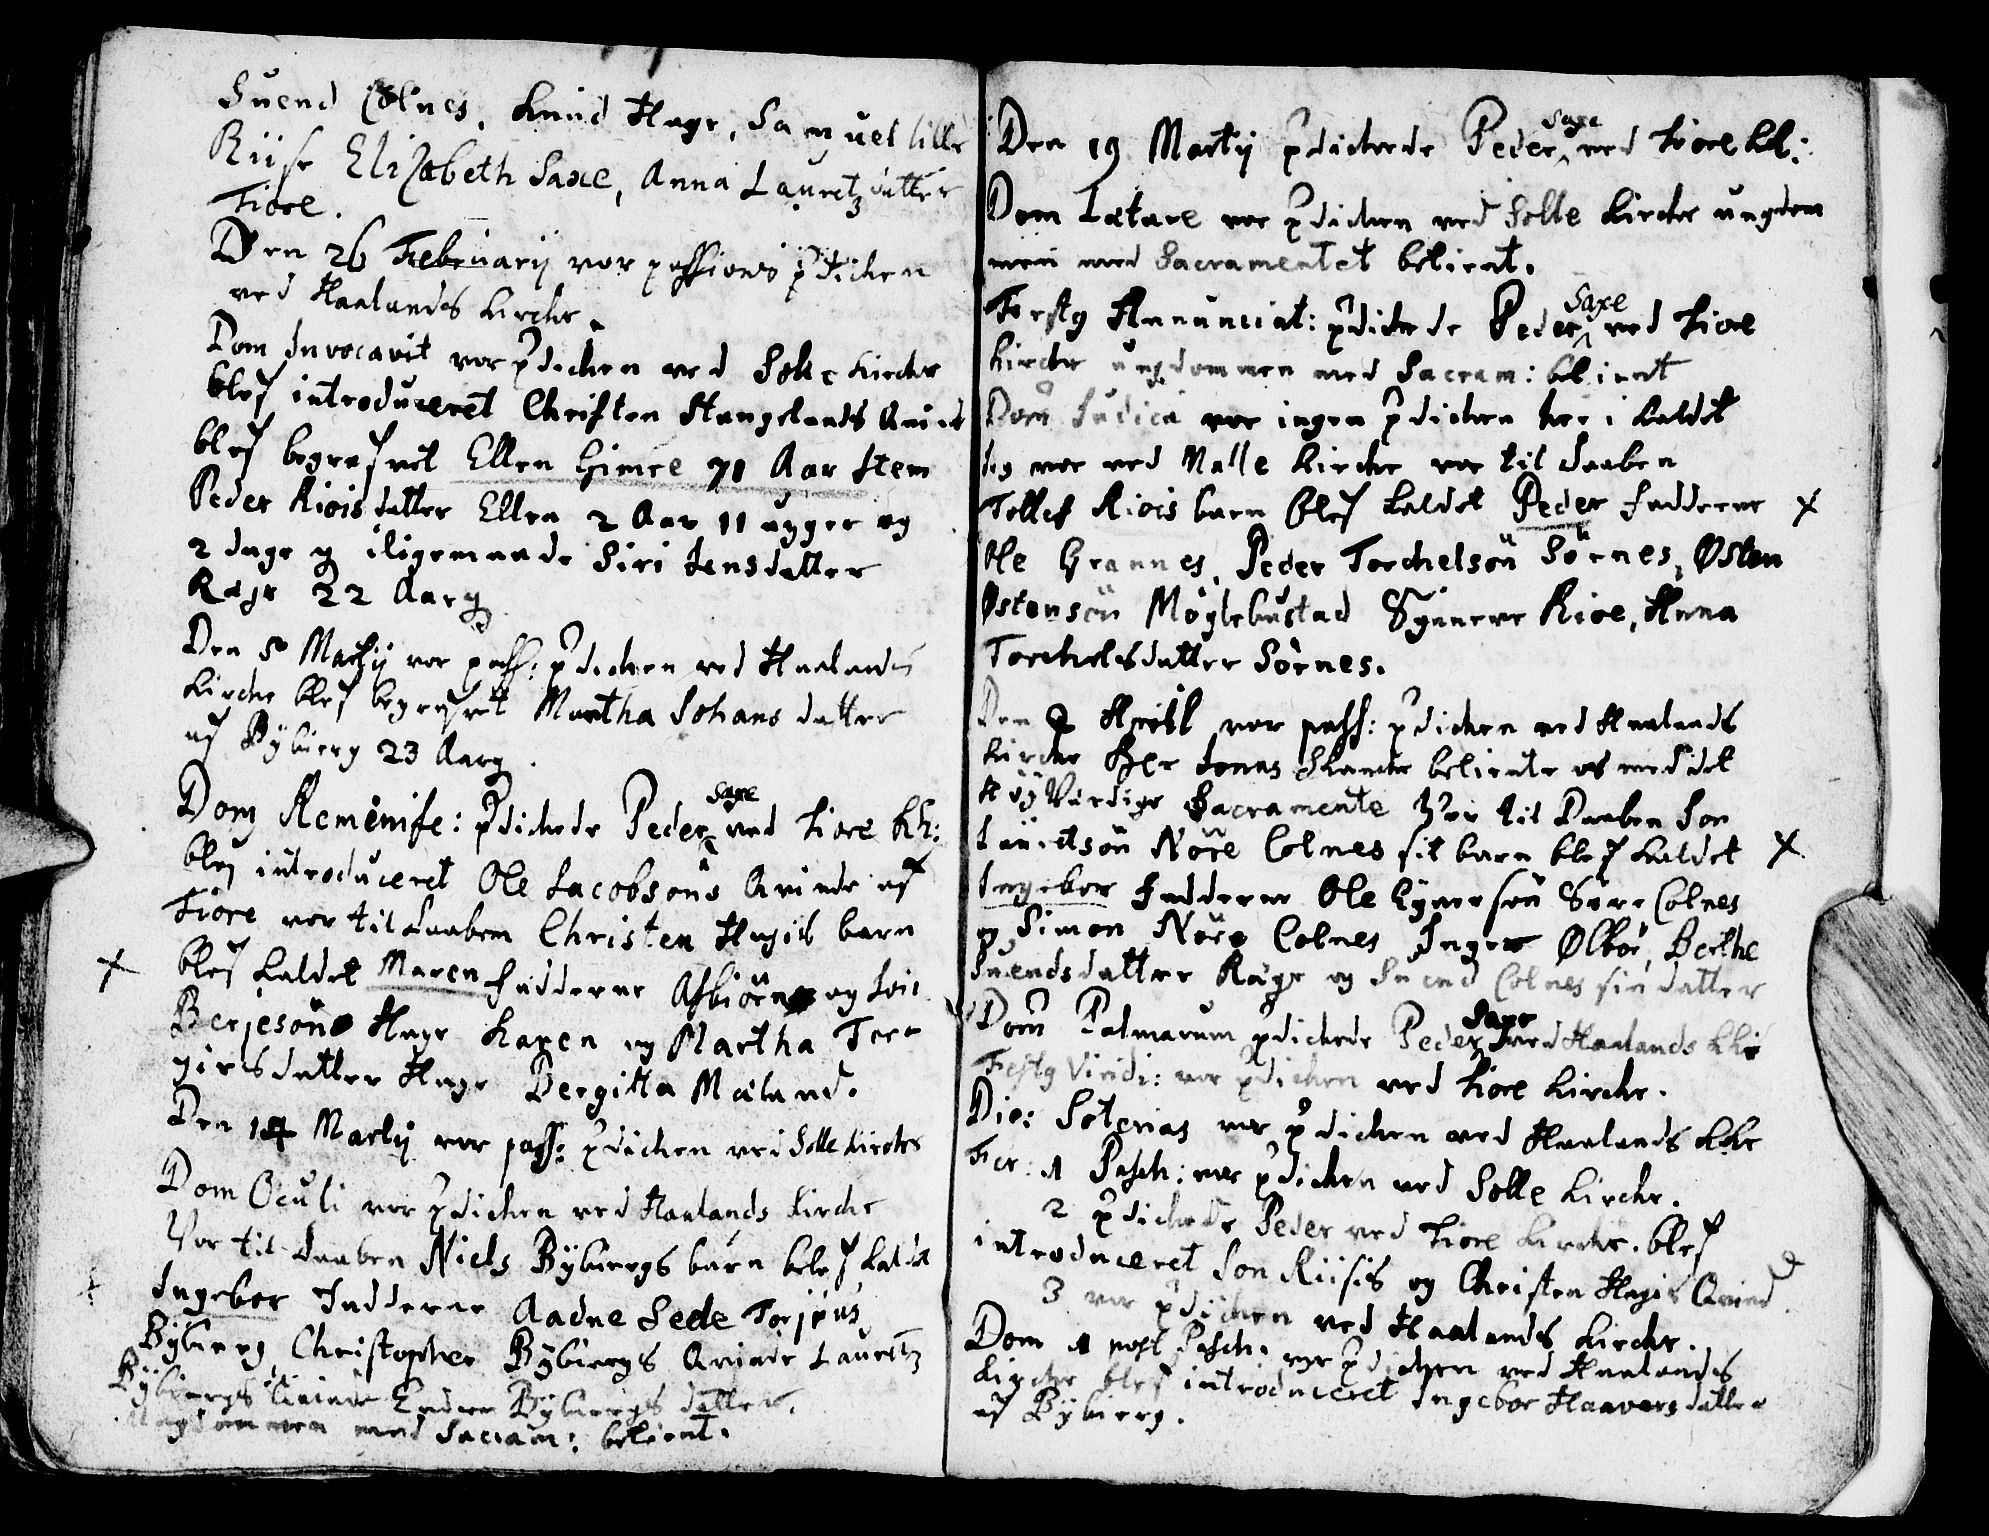 Suend Colnes, Knud Hage, Samuel lille
Riise Elizabeth Saxe, Anna Lauretzdatter
Tiore.
Den 26 Februarij vor passions pdichen
ved Haalands Kirche.
Dom Invocavit vor pdichen ved Solle Kirche
blef introduceret Christen Stangelands Quinde
blef begrafvet Ellen Gimre 71 Aar Item
Peder Riois datter Ellen 2 Aar 11 uger og
2 dage og iligemaade Siri Jensdatter
Rege 22 Aarg
Den 5 Martij vor pass: pdichen ved Haalands
Kirche blef begrafvet Martha Johans datter
af Bybierg 23 Aarg.
Dom Reminise: pdichede Peder Saxe ved Tiore Kh:
blef introduceret Ole Jacobsöns Qvinde af
Tiore vor til daaben Christen Hagis barn
+ blef kaldet Maren fadderne Asbiörn og
Berjesön Hage Karen og Martha Ter-
girsdatter Hage Bergitta Mæland.
Den 14 Martij vor pass: pdichen ved Solle Kirche
Dom Oculi vor pdichen ved Haalands Kirche
Vor til daaben Niels Bybergs barn blef kaldet
Ingebor Fadderne Aadne Sede Torjeus
Bybierg, Christopher Bybiergs Qvinde Lauretz
Bybiergs Qvinde Endre Bybiergs datter.
Ungdommen med Sacram: betient.
Den 19 Martij pdichede Peder Saxe ved Tiore Kh:
Dom Lætare vor pdichen ved Solle Kirche ungdom
men med Sacramentet betient.
Festg Annunciat: pdichede Peder Saxe ved Tiore
Kirche ungdommen med Sacram: betient
Dom Judica vor ingen pdichen her i Kaldet
Jeg vor ved Malle Kirche vor til daaben
Tollef Riois barn blef kaldet Peder fadderne +
Ole Grannes, Peder Torchelsön Sörnes, Østen
Østensön Möglebustad Synneve Rioe, Anna
Torchelsdatter Sörnes.
Den 2 Aprill vor pass: pdichen ved Haalands
Kirche Her Jonas Skanche betiente os med det
Høyværdige Sacramente Vor til Daaben Jon
Knudsön Nöre Colnes sit barn blef kaldet +
Ingebor Fadderne Ole Ejnersön Söre Colnes
og Simon Nöre Colnes Inger Ølbör, Berthe
Suendsdatter Räge og Suend Colnes sin datter
Dom Palmarum pdichede Peder Saxe ved Haalands Khe
Festg Viridi: vor pdichen ved Tiore Kirche.
Die: Soterias vor pdichen ved Haalands Khe
Fer: 1 Pasch: vor pdichen ved Solle Kirche.
2 pdichede Peder ved Tiore Kirche. blef
introduceret Jon Riisis og Christen Hagis Qvind
3 vor pdichen ved Haalands Kirche.
Dom 1 post Pasch: vor pdichen ved Haalands
Kirche blef introduceret Ingebor Haavars datter
af Bybierg.